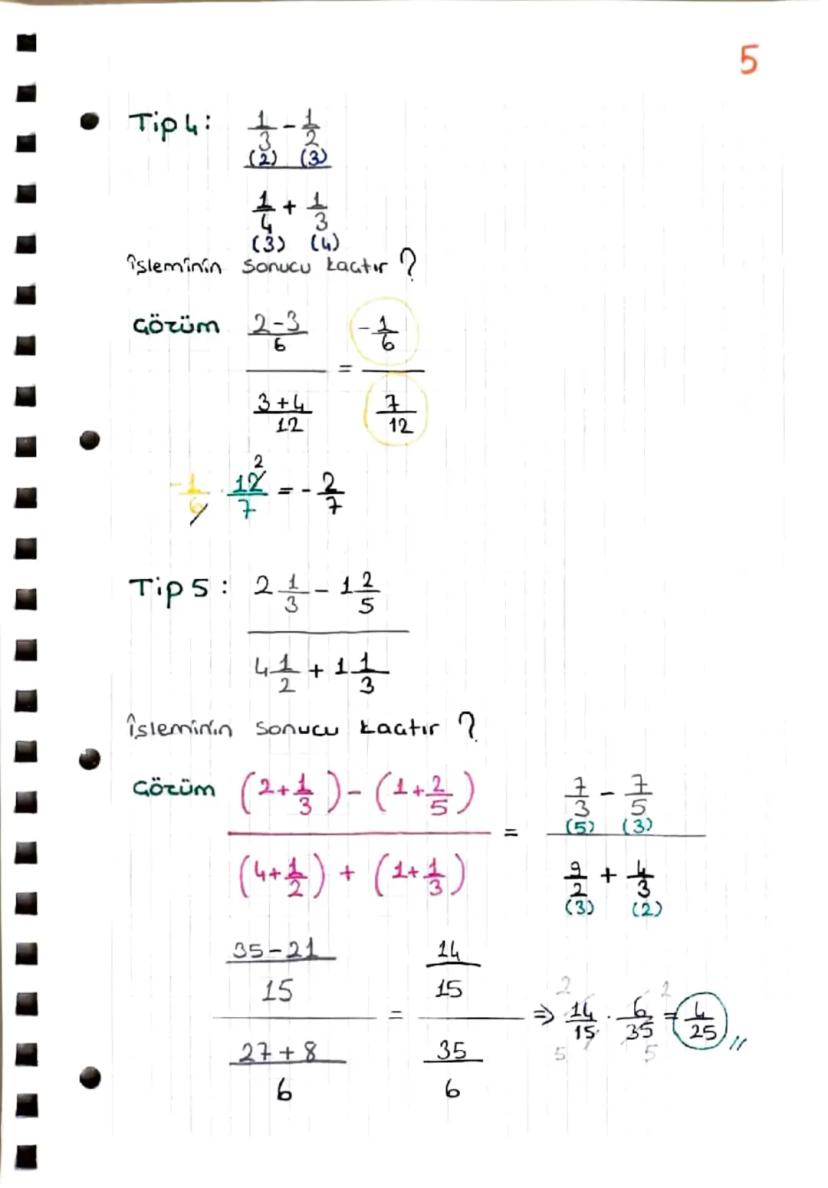 5
Tip 4: 1/3 - 1/2
(2) (3)
1/4 + 1/3
(3) (4)
işleminin sonucu kaçtır ?
Çözüm (2-3)/6 / (3+4)/12 = -1/6 / 7/12
-1/6 . 12/7 = -2/7
2
Tip 5 : 2 1/3 - 1 2/5
4 1/2 + 1 1/3
işleminin sonucu kaçtır ?
Çözüm (2+1/3) - (1+2/5) = 7/3 - 7/5
(5) (3)
(4+1/2) + (1+1/3) 9/2 + 4/3
(3) (2)
(35-21)/15 / (27+8)/6 = 14/15 / 35/6 ⇒ 14/15 . 6/35 = 4/25 //
2 2
5 5